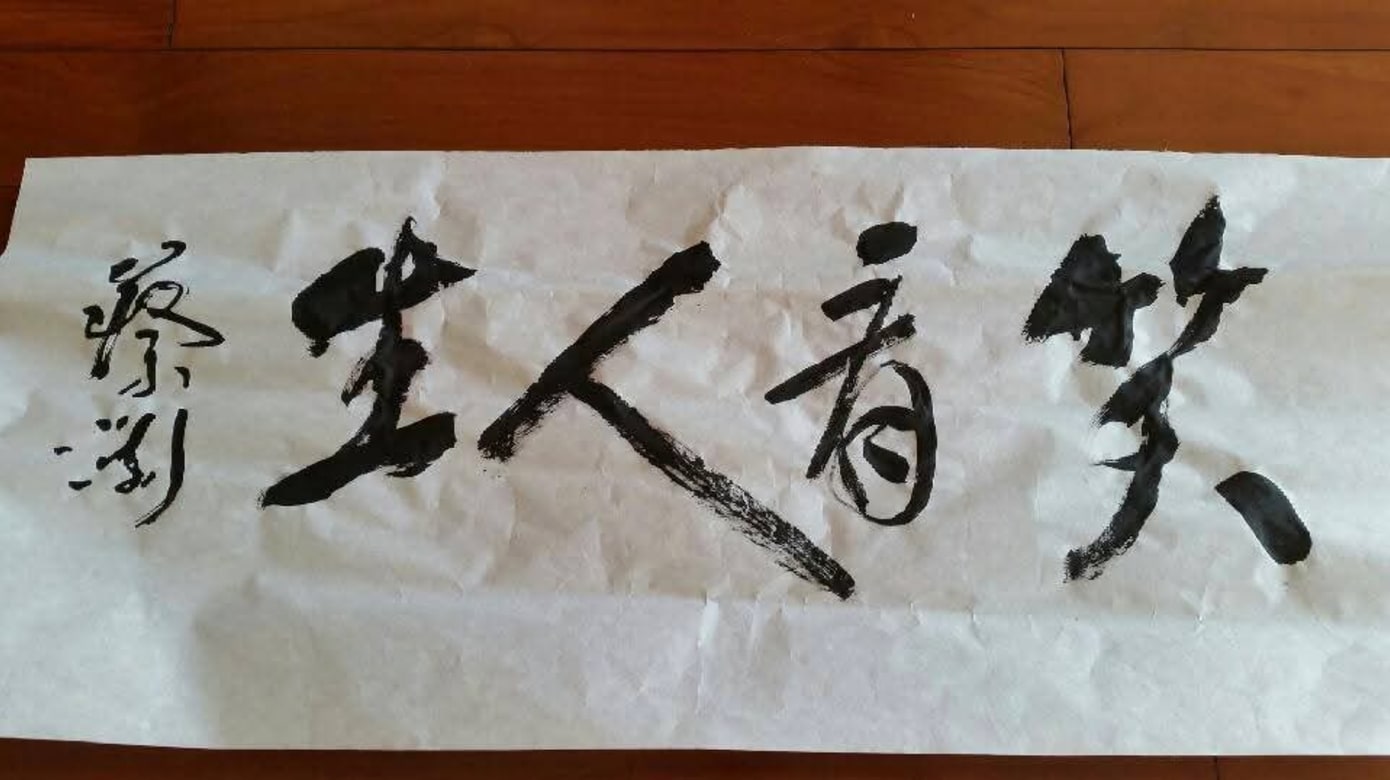 笑看人生
蔡澜